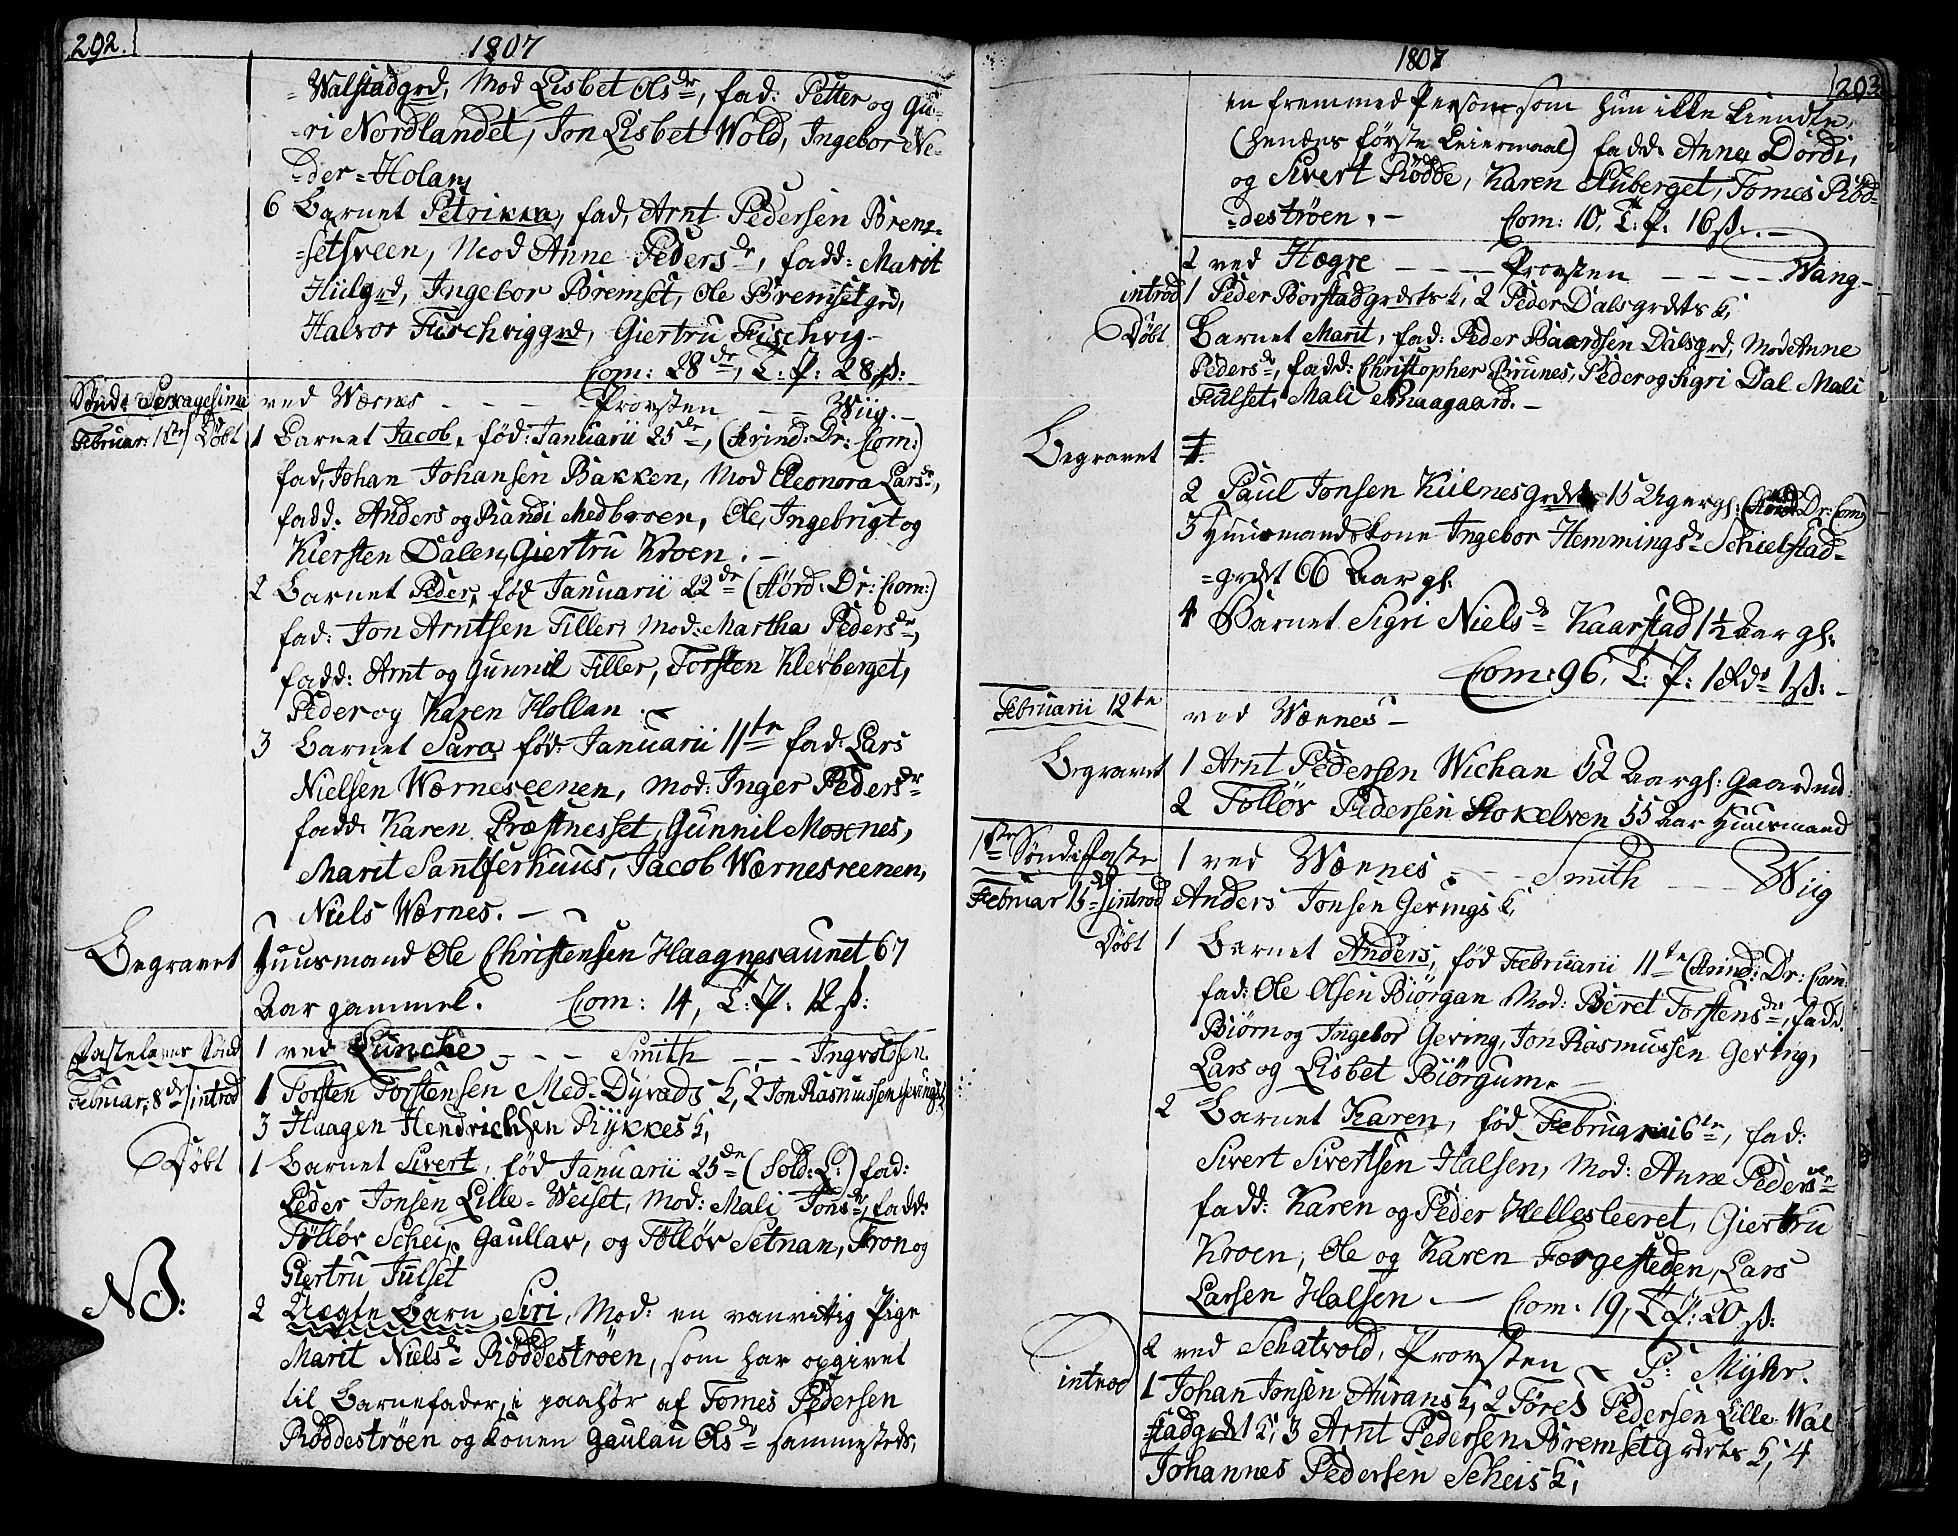 292.
1807
Walstadgrd, Mod Lisbet Olsdr, fad: Petter og Gu-
-ri Nordlandet, Jon Lisbet Wold, Ingebor Ne-
der-Holan,
6 Barnet Petrikka, fad, Arnt Pedersen Brem-
-setsveen, Mod Anne Pedersdr, fadd: Marit
Hiilgrd, Ingebor Bremset, Ole Bremsetgrd,
Halvor Fischviggrd, Giertru Fischvig.-
Com: 28dr, T: P: 28 ß:
Sönd: Sexagesima ved Wærnes - - - - Provsten - - Wiig.-
Februar: 1ste Döbt 1 Barnet Jacob, föd: Januarii 25dr, (Trind: Dr: Com:)
fad, Johan Johansen Bakken, Mod Eleonora Larsdr,
fadd. Anders og Randi Medbroen, Ole, Ingebrigt og
Kiersten Dalen, Giertru Kroen.-
2 Barnet Peder, föd Januarii 22dr (Störd: Dr: Com:)
fad: Jon Arntsen Tiller, Mod: Martha Pedersdr,
fadd: Arnt og Gunnil Tiller, Torsten Klevberget,
Peder og Karen Hollan.-
3 Barnet Sara, föd: Januarii 11te fad: Lars
Nielsen Wærnesreenen, Mod: Inger Pedersdr
fadd: Karen Præstnesset, Gunnil Moxnes,
Marit Santferhuus, Jacob Wærnesreenen,
Niels Wærnes.-
Begravet Huusmand Ole Christensen Haagnesaunet 67
Aar gammel. Com: 14, T: P: 12 ß:
Fastelavns Sönd 1 ved Luncke - - - Smith - - - Ingvoldsen.
Februar, 8de introd 1 Torsten Torstensen Med-Dyvads k, 2 Jon Rasmussen Gevings k,
3 Haagen Hendrichsen Rykkes k,
Döbt 1 Barnet Sivert, föd Januarii 25dr (Sold: L:) fad:
Peder Jonsen Lille-Weiset, Mod: Mali Jonsdr, fadd:
Tölløv Schei, Gaullav, og Tölløv Setnan, Tron og
Giertru Julset
NB: 2 Uægte Barn Siri, Mod: en vanvittig Pige
Marit Nielsdr Röddeströen, som har opgivet
til Barnefader, i paahør af Tomes Pedersen
Röddeströen og konen Gaulau Olsdr sammesteds,
1807
293
en fremmed Person som hun ikke kiendte,
(hendes förste Leiermaal) fadd. Anne, Dordi,
og Sivert Rödde, Karen Auberget, Tomes Röd-
-deströen.- Com: 10, T: P: 16 ß:.-
2 ved Hegre - - - - Provsten - - - - Wang-
introd 1 Peder Borstadgrdets k, 2 Peder Dalsgrdets k,
Döbt Barnet Marit, fad: Peder Baardsen Dalsgrd, Mod Anne
Pedersdr, fadd: Christopher Brunes, Peder og Sigri Dal Mali
Fulset, Mali Naagaard.-
Begravet 1.
2 Paul Jonsen Kiilnesgrdet 15 Uger gl: (Störd Dr: Com)
3 Huusmandskone Ingebor Hemmingsdr Schielstad-
-grdet 66 Aar gl:
4 Barnet Sigri Nielsdr Kaarstad 1½ Aar gl:
Com: 96, T: P: 1 Rdr 1 ß:-
Februarii 12te ved Wærnes-
Begravet 1 Arnt Pedersen Wichan 52 Aar gl: Gaardmd:
2 Tölløv Pedersen Stokelven 55 Aar Huusmand
1ste Sönd: i Faste 1 ved Wærnes - - - Smith - - - Wiig
Februar 15de introd Anders Jonsen Gevings k,
Döbt 1 Barnet Anders, föd Februarii 11te (Trind: Dr: Com:
fad: Ole Olsen Biörgan Mod: Beret Torstensdr, fadd.
Biörn og Ingebor Geving, Jon Rasmussen Geving,
Lars og Lisbet Biörgum.-
2 Barnet Karen, föd Februarii 6te, fad:
Sivert Sivertsen Halsen, Mod: Anne Pedersdr
fadd: Karen og Peder Hellesleeret, Giertru
Kroen, Ole og Karen Færgesteden, Lars
Larsen Halsen.- Com: 19, T: P: 20 ß:
2 ved Schatvold, Provsten - P: Myhr.
introd 1 Johan Jonsen Aurans k, 2 Töres Pedersen Lille-Wal
stadgrdet k, 3 Arnt Pedersen Bremsetgrdets k, 4
Johannes Pedersen Scheis k,